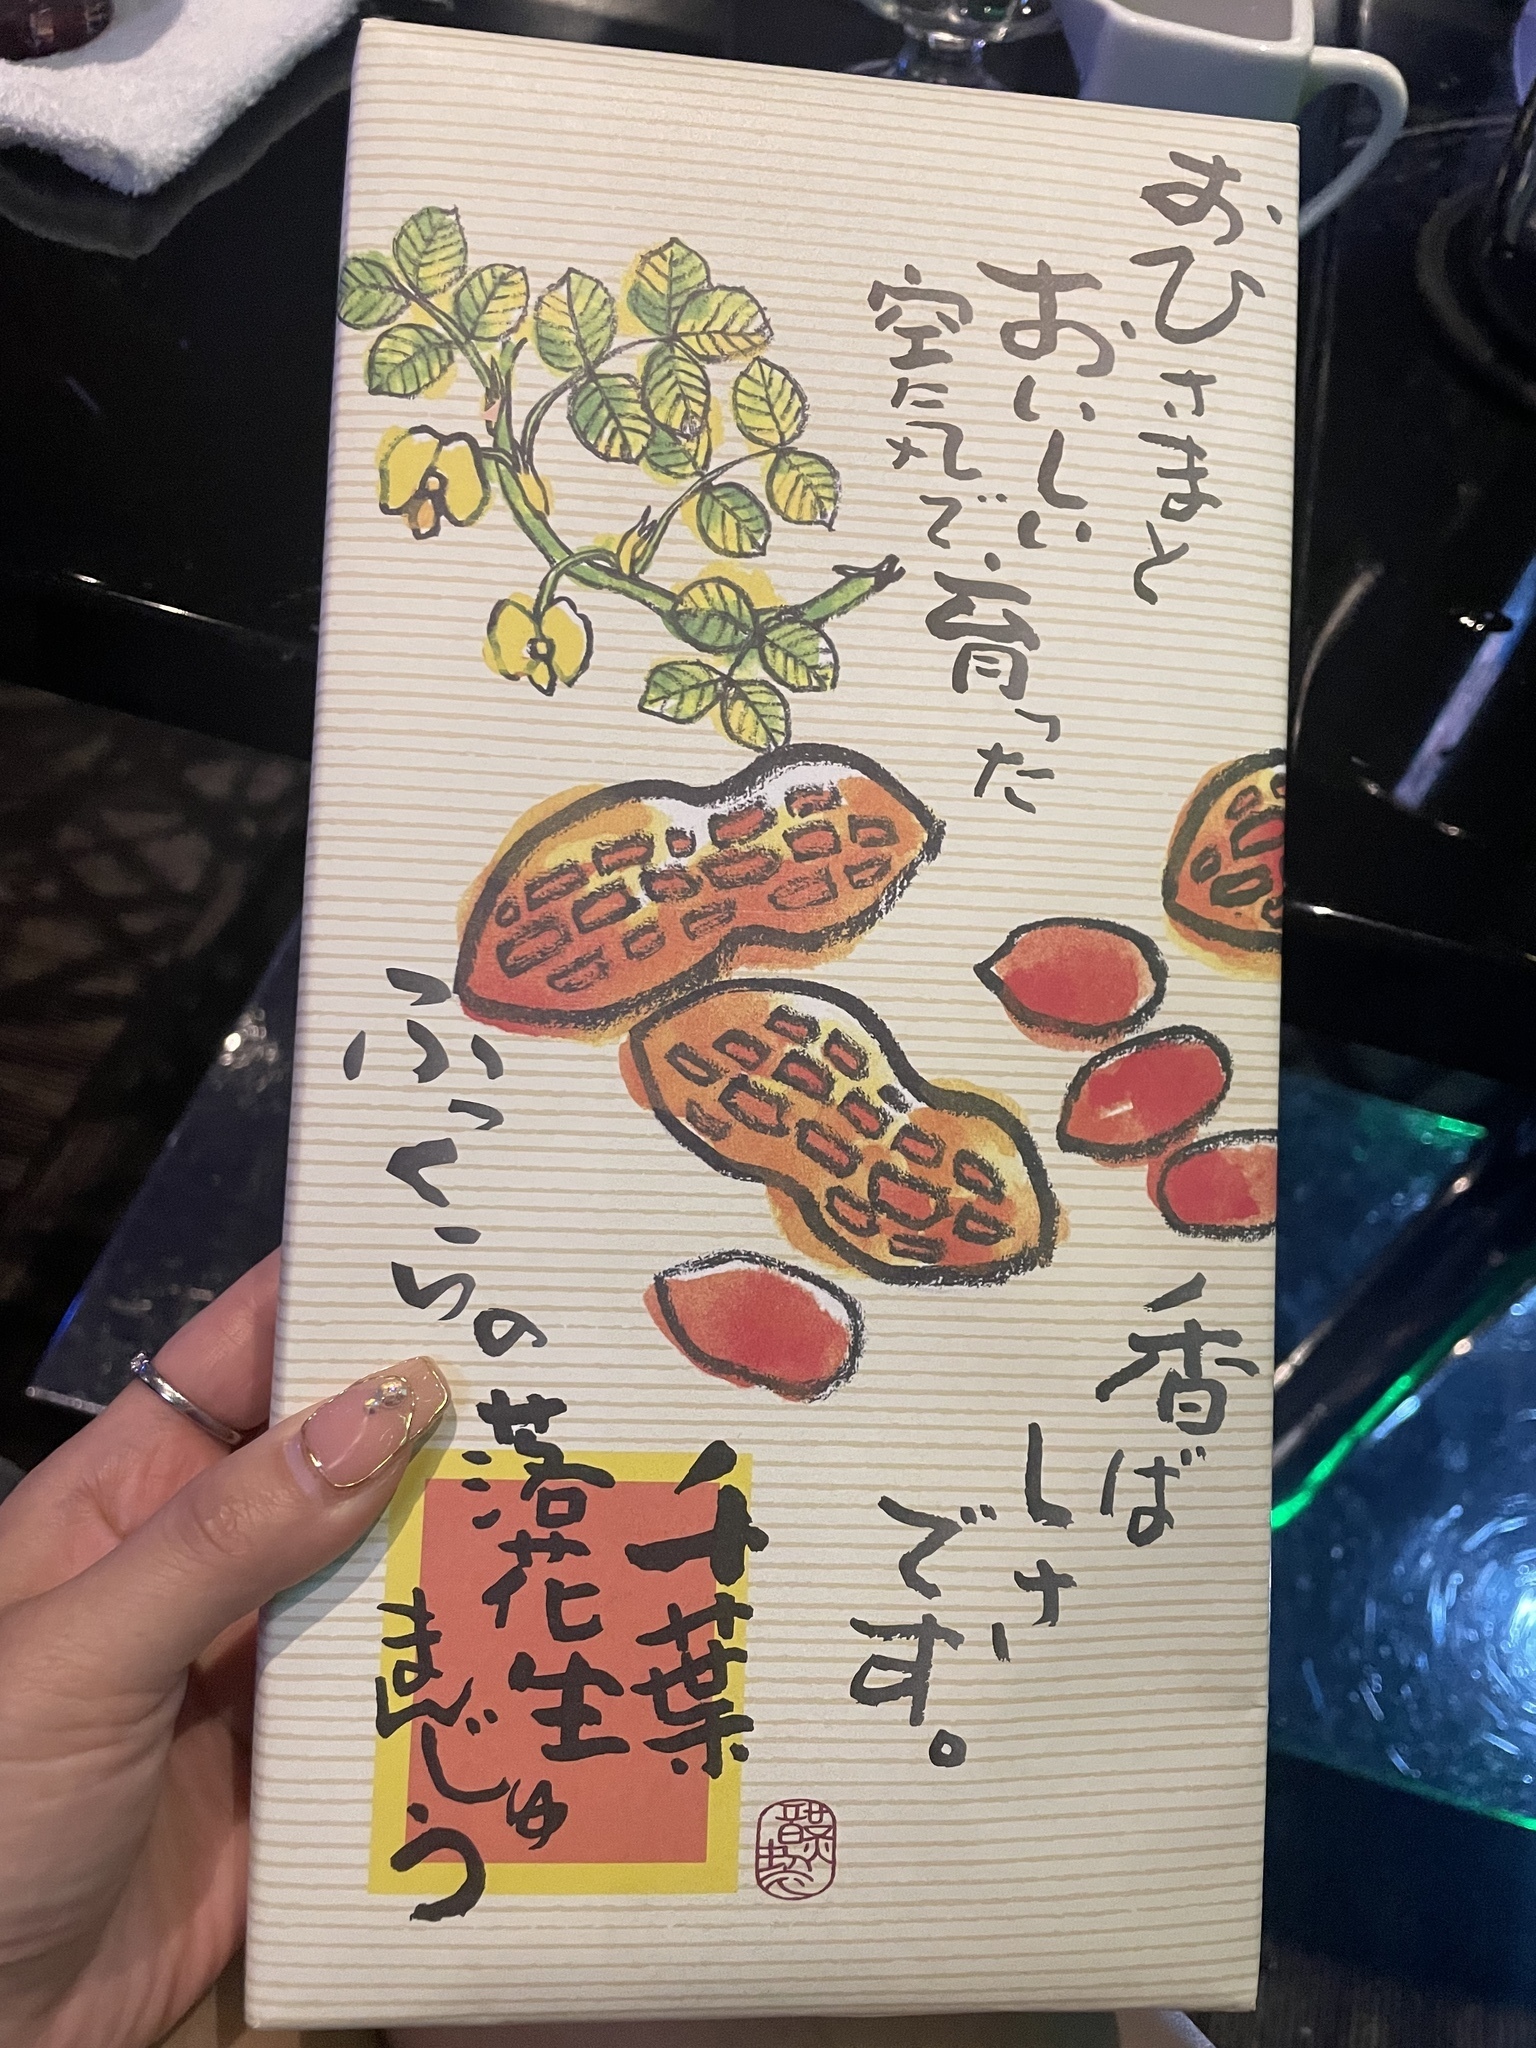 おひさまと
おいしい
空気で、育った
香ば
しさ
です。
ふっくらの
千葉
落花生
まんじゅう